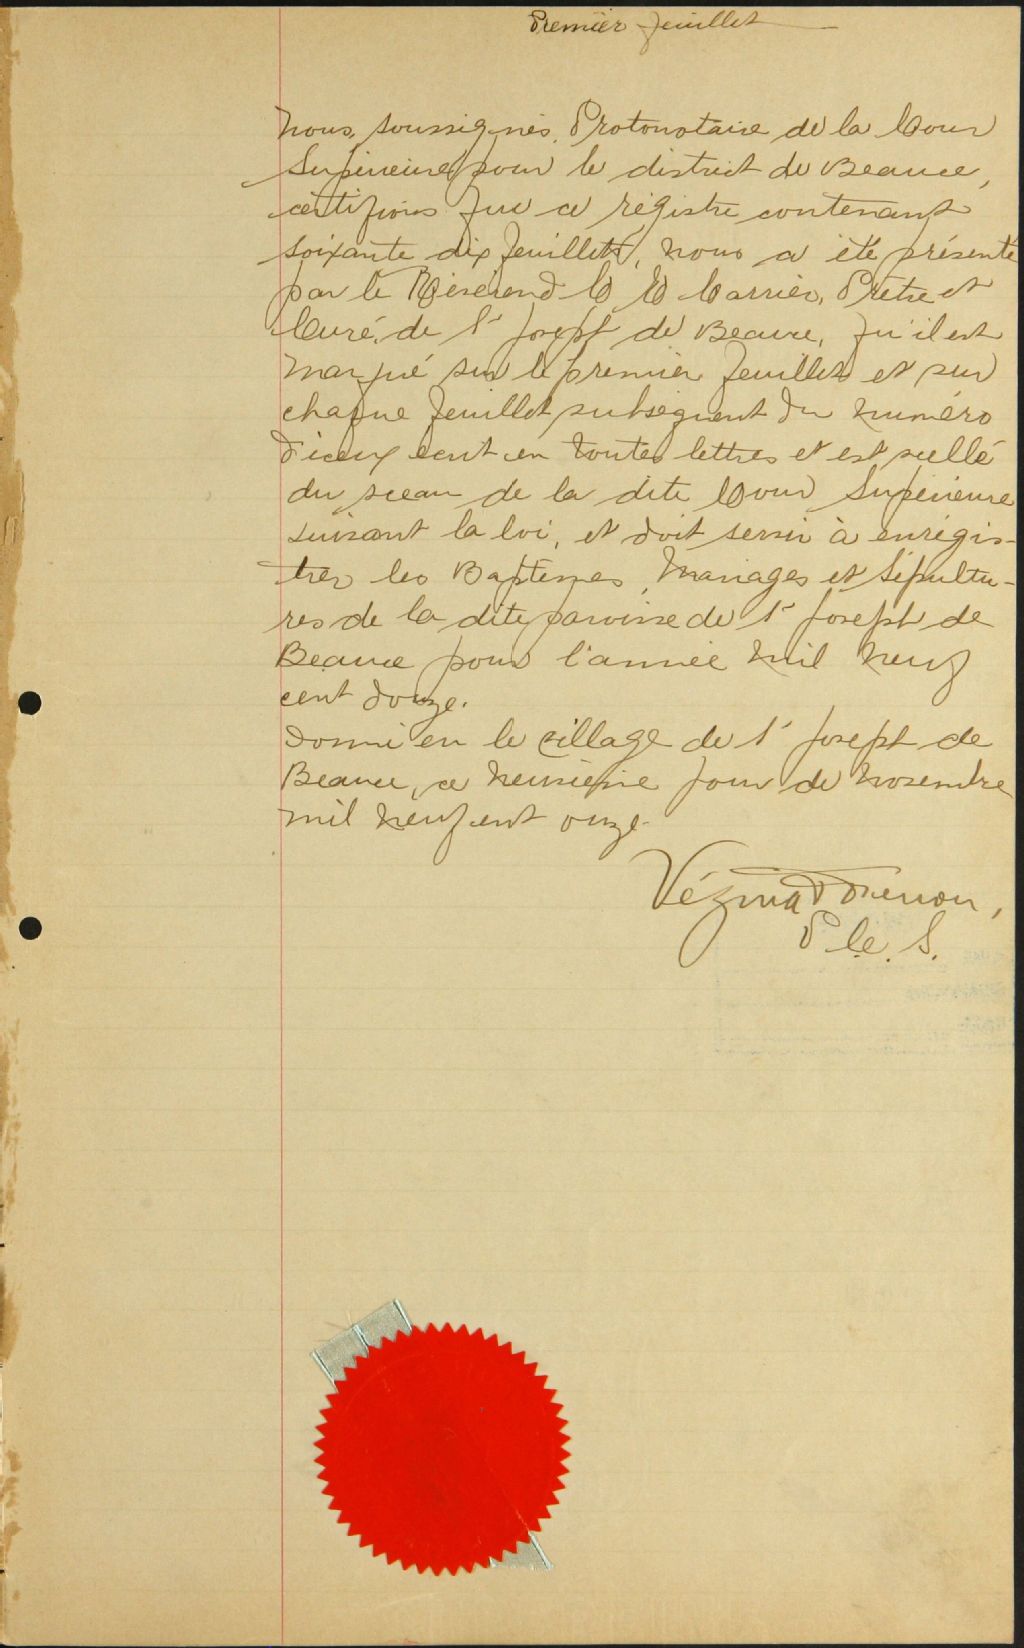 Premier feuillet
Nous, soussignés, Protonotaire de la Cour
Supérieure pour le district de Beauce,
certifions que ce régistre contenant
soixante dix feuillets, nous a été présenté
par le Révérend C C Carrier, Prêtre et
Curé, de St Joseph de Beauce, qu'il est
marqué sur le premier feuillet et sur
chaque feuillet subséquent du numéro
d'iceux écrit en toutes lettres et est scellé
du sceau de la dite Cour Supérieure
suivant la loi, et doit servir à enrégis-
trer les Baptêmes, Mariages et Sépultu-
res de la dite paroisse de St Joseph de
Beauce pour l'année mil neuf
cent douze.
Donné en le village de St Joseph de
Beauce, ce neuvième jour de Novembre
mil neuf cent onze.
Vézina &
P. C. S.